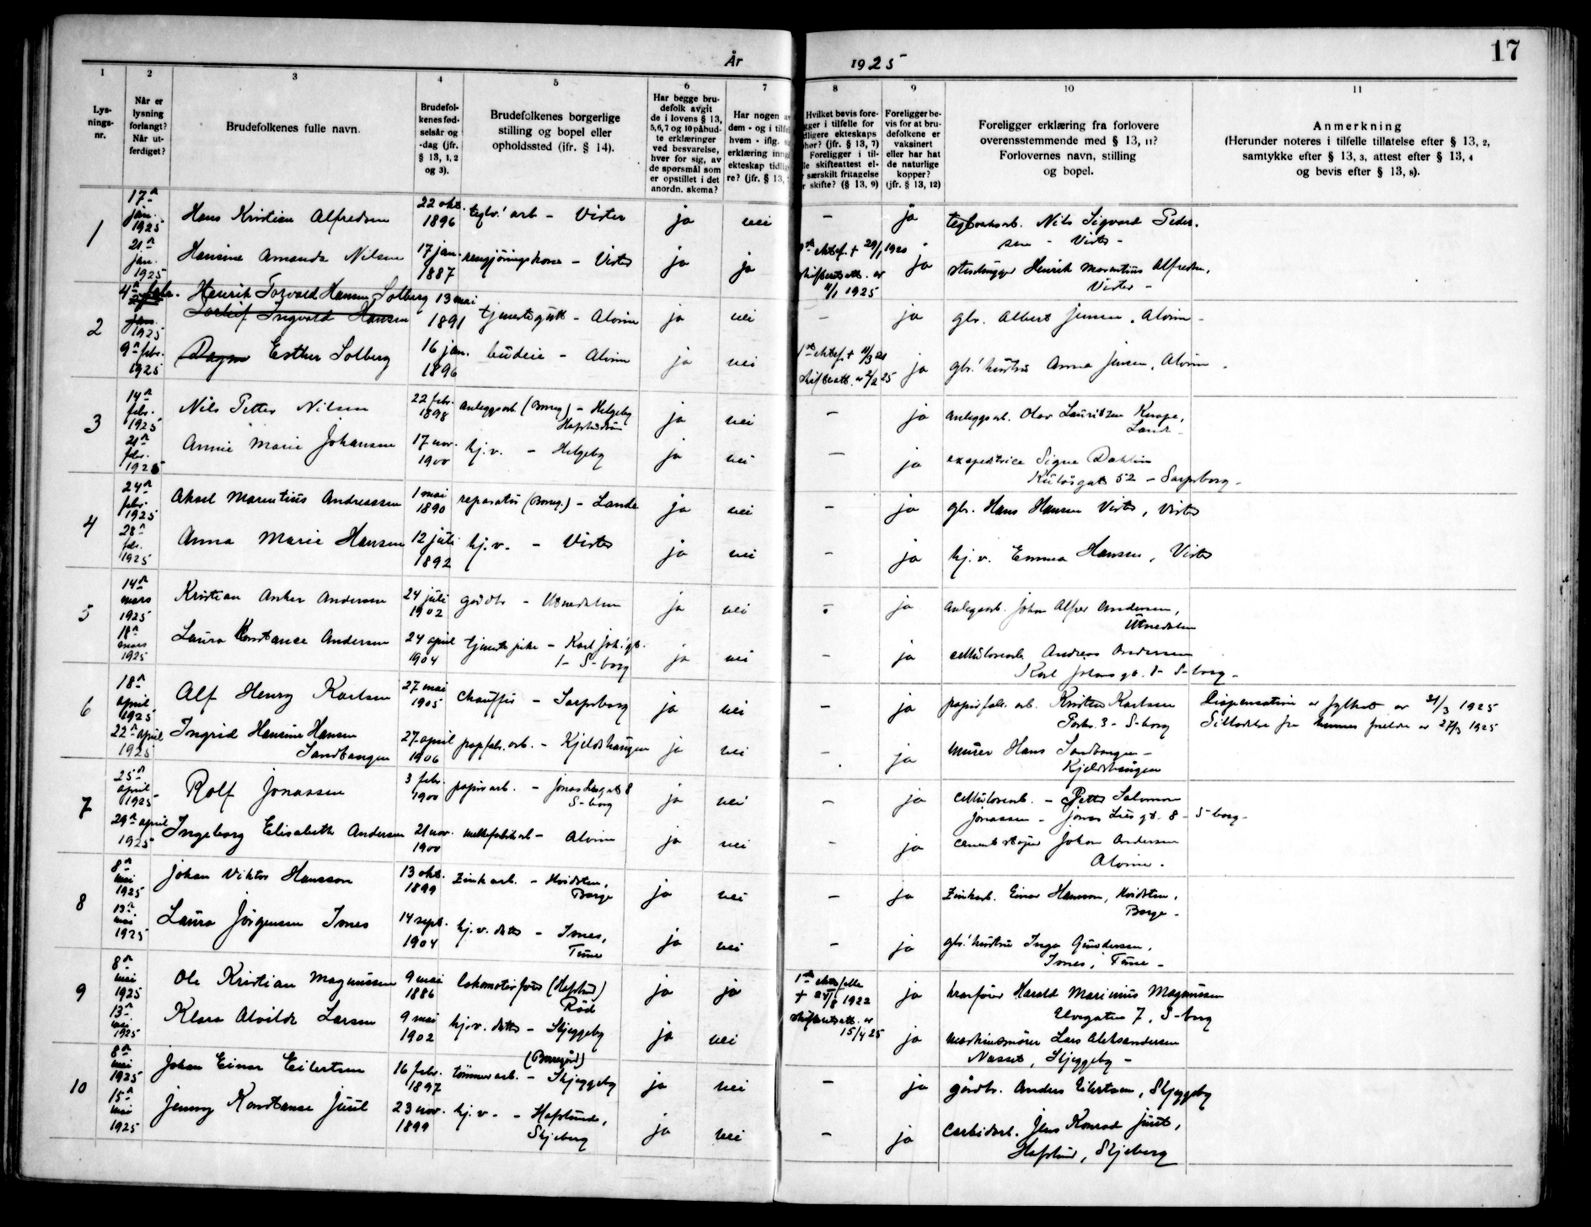 År 1925
17
1 2 3 4 5 6 7 8 9 10 11
Lys-
nings-
nr.
Når er
lysning
forlangt?
Når ut-
ferdiget?
Brudefolkenes fulle navn.
Brudefol-
kenes fød-
selsår og
-dag (jfr.
§ 13, 1, 2
og 3).
Brudefolkenes borgerlige
stilling og bopel eller
opholdssted (ifr. § 14).
Har begge bru-
defolk avgit
de i lovens § 13,
5, 6, 7 og 10 påbud-
te erklæringer
ved besvarelse,
hver for sig, av
de spørsmål som
er opstillet i det
anordn. skema?
Har nogen a
dem - og i tilfel
hvem - iflg.
erklæring inng
ekteskap tidlig
re? (jfr. § 13,
Hvilket bevis fore-
gger i tilfelle for
dligere ekteskaps
hør? (jfr. § 13, 7)
Foreligger i til-
le skifteattest el-
særskilt fritagelse
r skifte? (§ 13, 9)
Foreligger be-
vis for at bru-
defolkene er
vaksinert
eller har hat
de naturlige
kopper?
(jfr. § 13, 12)
Foreligger erklæring fra forlovere
overensstemmende med § 13, 11?
Forlovernes navn, stilling
og bopel.
Anmerkning
(Herunder noteres i tilfelle tillatelse efter § 13, 2,
samtykke efter § 13, 3, attest efter § 13, 4
og bevis efter § 13, 8).
1
17de jan. 1925
Hans Kristian Alfredsen
22 okt. 1896
teglv. arb - Vister
ja nei - ja
teglverksarb. Nils Sigvard Peder-
sen - Vister -
21de jan. 1925
Hansine Amanda Nilsen
17 jan. 1887
rengjøringskone - Vister
ja ja
ektef. + 29/1 1920
skifteatt. er
11/1 1925
ja
stenhugger Henrik Marentius Alfredsen,
Vister -
2
4de febr.
jan.
1925
Henrik Torvald Hansen Solberg
Ingvard Hansen
13 mai 1891
tjenestegutt - Alvim
ja nei - ja
gbr. Albert Jensen, Alvim -
9de febr. 1925
Dagny Esther Solberg
16 jan. 1896
budeie - Alvim
ja nei
1ste ektef. + 11/3 21
skifteatt. er 2/2 25
ja
gbr. hustru Anna Jensen, Alvim -
3
14de febr. 1925
Nils Petter Nilsen
22 febr. 1898
anleggsarb. (Borreg) - Helgeby
Hafslundsøen
ja nei - ja
anleggsarb. Olav Lauritzen Knapø,
Lande -
21de febr. 1925
Annie Marie Johansen
17 nov. 1900
hj.v. - Helgeby
ja nei - ja
expeditrice Signe Dahlin
Kulåsgat. 52 - Sarpsborg -
4
24de febr. 1925
Aksel Marentius Andreassen
1 mai 1890
reparatør (Borreg.) - Lande
ja nei - ja
gbr. Hans Hansen Vister, Vister
28de febr. 1925
Anna Marie Hansen
12 juli 1892
hj.v. - Vister
ja nei - ja
hj.v. Emma Hansen, Vister
5
14de mars 1925
Kristian Anker Andersen
24 juli 1902
gårdbr - Utnedalen
ja nei - ja
anlegsarb. Johan Alfred Andersen,
Utnedalen
18de mars 1925
Laura Konstanse Andersen
24 april 1904
tjenestepike - Karl Joh. gt.
1 - S-borg
ja nei - ja
cellulosearb. Andreas Andersen
Karl Johans gt. 1 - S-borg -
6
18de april 1925
Alf Henry Karlsen
27 mai 1905
chauffør - Sarpsborg
ja nei - ja
papirfabr. arb. Kristen Karlsen
Parkv. 3 - S-borg
Dispensation er fylket er 31/3 1925
Tilladelse fra hennes foreldre er 27/3 1925
22de april 1925
Ingrid Hansine Hansen
Sandtangen
27 april 1906
papfabr. arb. - Kjeldshaugen
ja nei - ja
murer Hans Sandtangen -
Kjeldshaugen
7
25de april 1925
Rolf Jonassen
3 febr. 1900
papirarb. - Jonas Liesgat 8
S-borg
ja nei - ja
cellulosearb. - Petter Salomon
Jonassen - Jonas Lies gt. 8 - S-borg -
29de april 1925
Ingeborg Elisabeth Andersen
21 nov. 1900
- Alvim
ja nei - ja
cementstøper Johan Andersen
Alvim -
8
8de mai 1925
Johan Viktor Hansson
13 okt. 1899
zinkarb. - Hvidsten,
Borge
ja nei - ja
zinkarb. Einar Hansson, Hvidsten,
Borge -
13de mai 1925
Laura Jørgensen Ines
14 sept. 1904
hj.v. datter - Ines,
Tune
ja nei - ja
gbr. hustru Inga Gundersen,
Ines, Tune -
9
8de mai 1925
Ole Kristian Magnussen
9 mai 1886
lokomotivfører (Hafslund)
Rød
ja ja
1ste ektefelle
+ 24/8 1922
skifteatt. er
15/4 25
ja
kranfører Harald Marinius Magnussen
Elvegaten 7, S-borg
13de mai 1925
Klara Alvilde Larsen
9 mai 1902
hj.v. datter - Skjeggeby
ja nei ja
maskinsmører Lars Aleksandersen
Nesset, Skjeggeby -
10
8de mai 1925
Johan Einar Eilertsen
16 febr. 1897
tømmerarb. - (Borregård)
Skjeggeby
ja nei - ja
gårdbr. Anders Eilertsen, Skjeggeby
15de mai 1925
Jenny Konstanse Juul
23 nov. 1899
hj.v. - Hafslund,
Skjeberg
ja nei - ja
carbidarb. Jens Konrad Juul,
Hafslund, Skjeberg